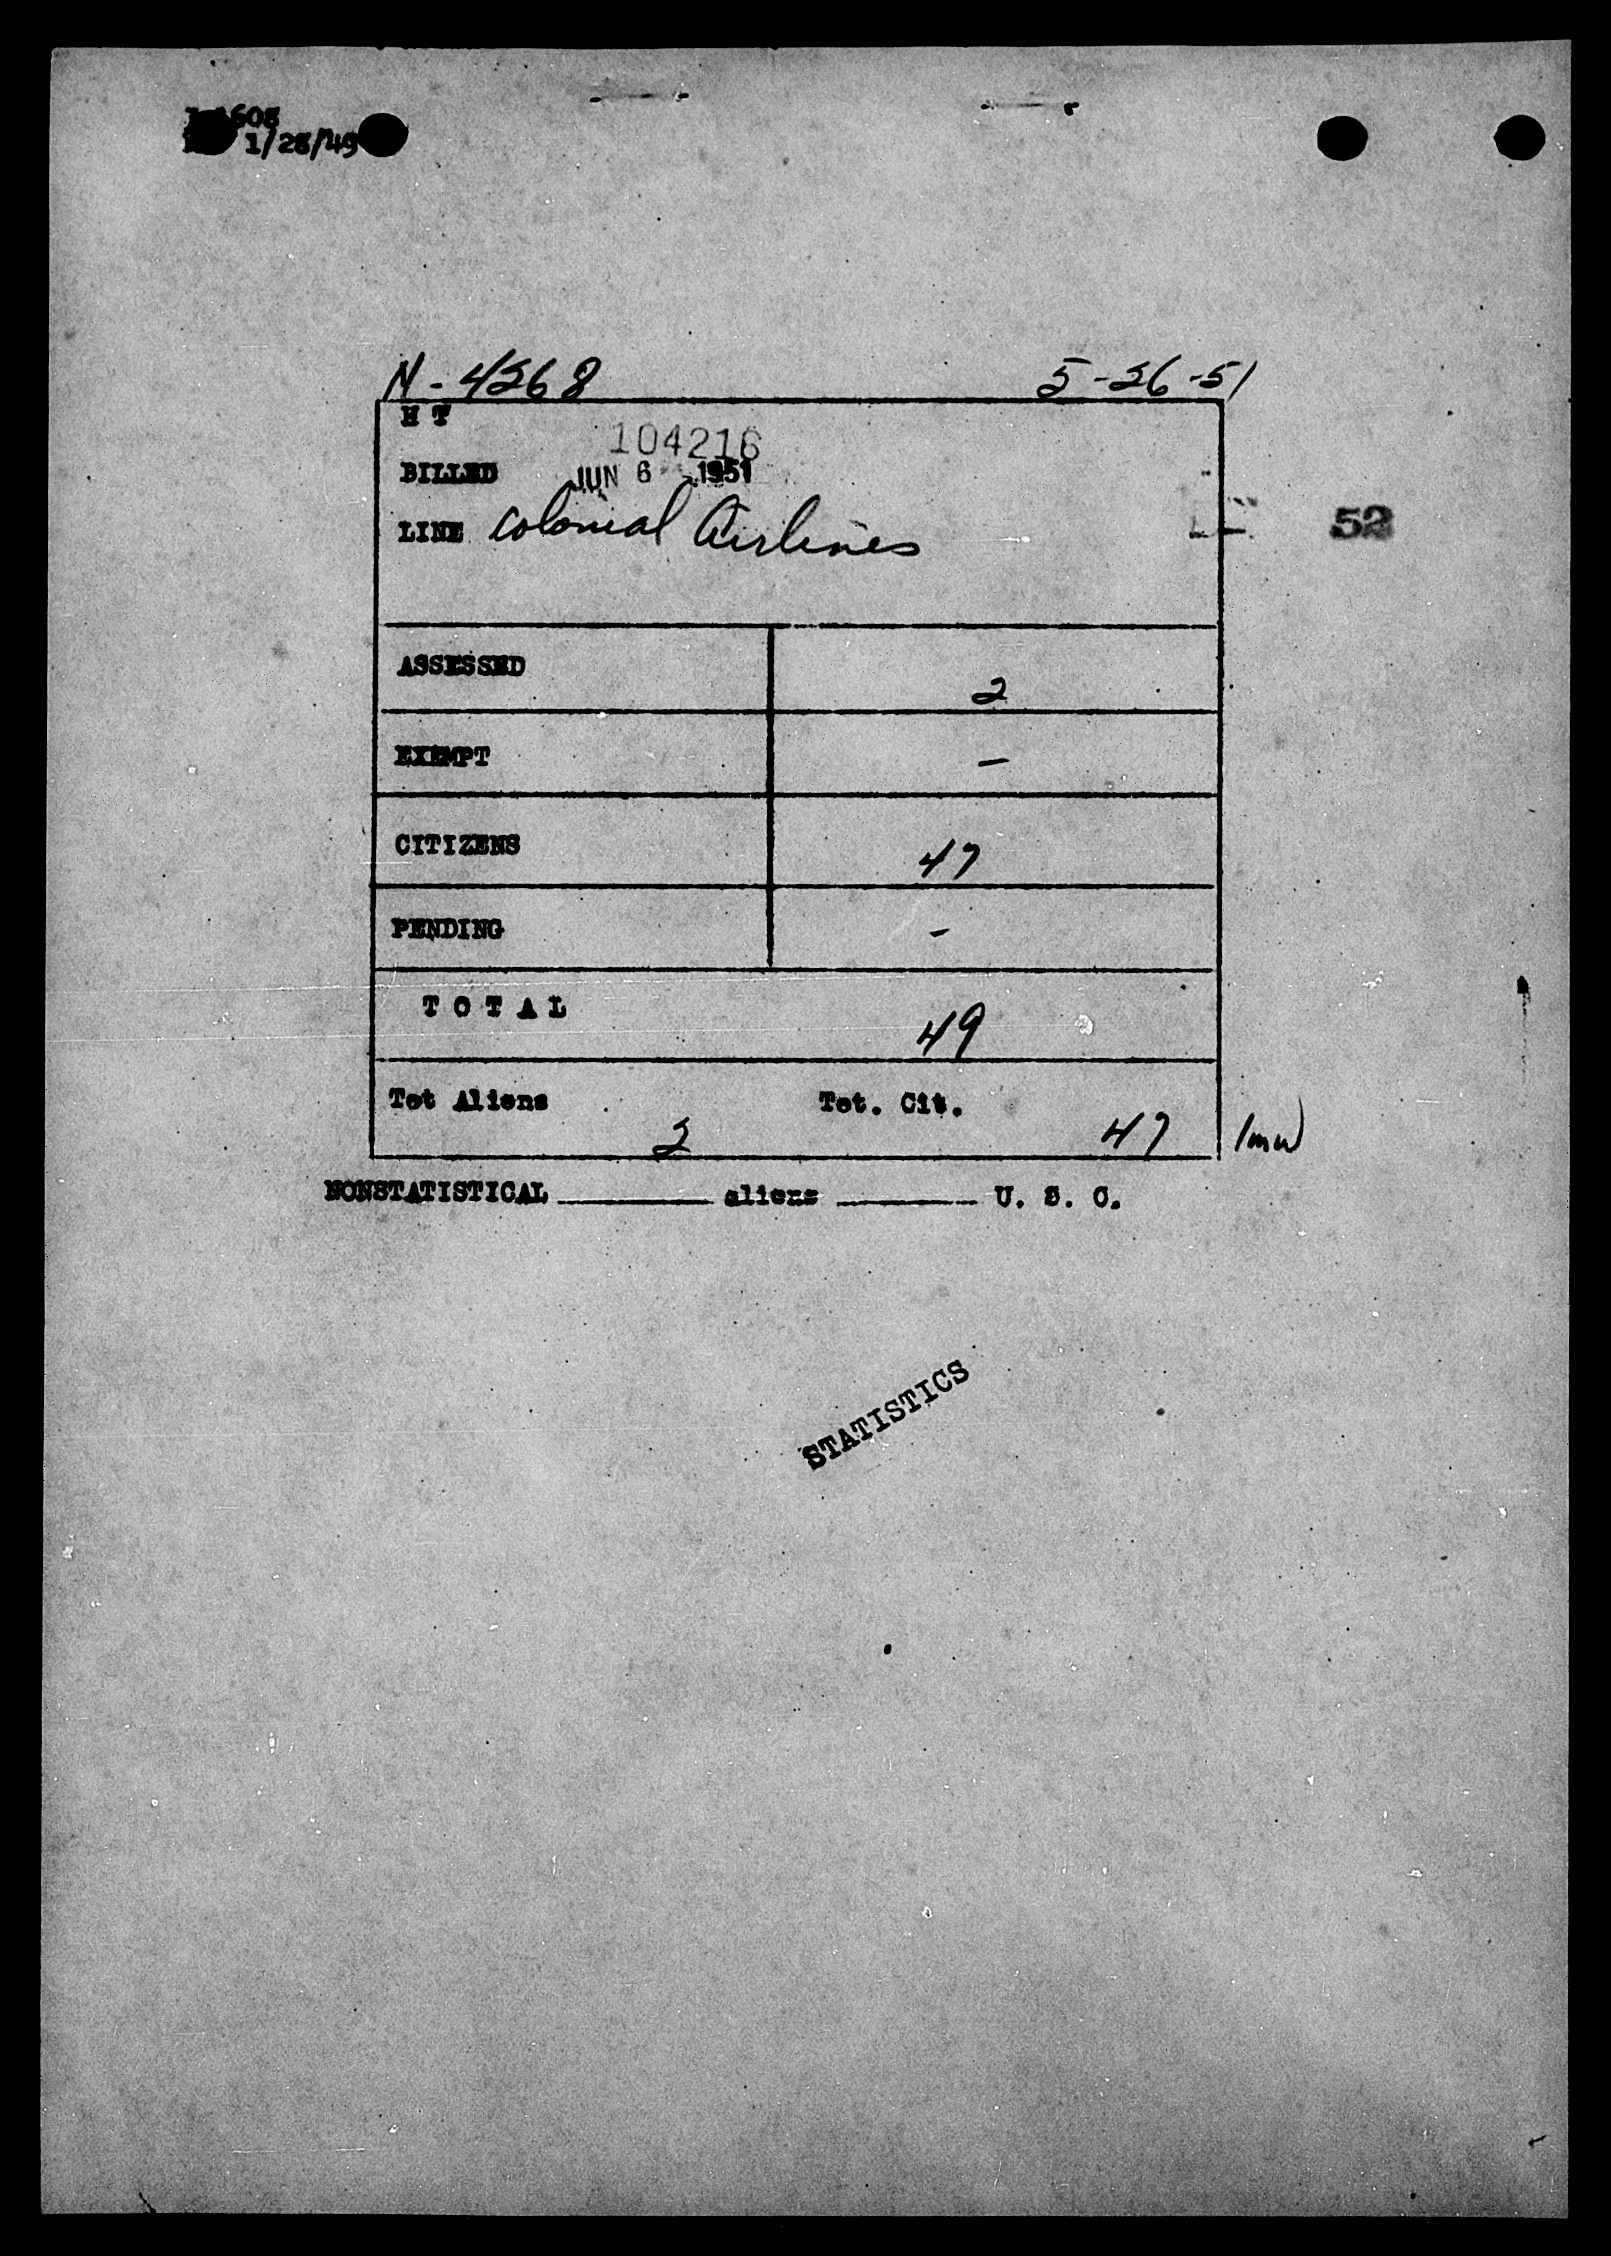 1/28/49
N-4268 5-26-51
H T
104216
BILLED JUN 6 1951
LINE Colonial Airlines
52
ASSESSED 2
EXEMPT —
CITIZENS 47
PENDING -
T O T A L 49
Tot Aliens Tot. Cit.
2 47
NONSTATISTICAL ______ aliens ______ U. S. C.
STATISTICS